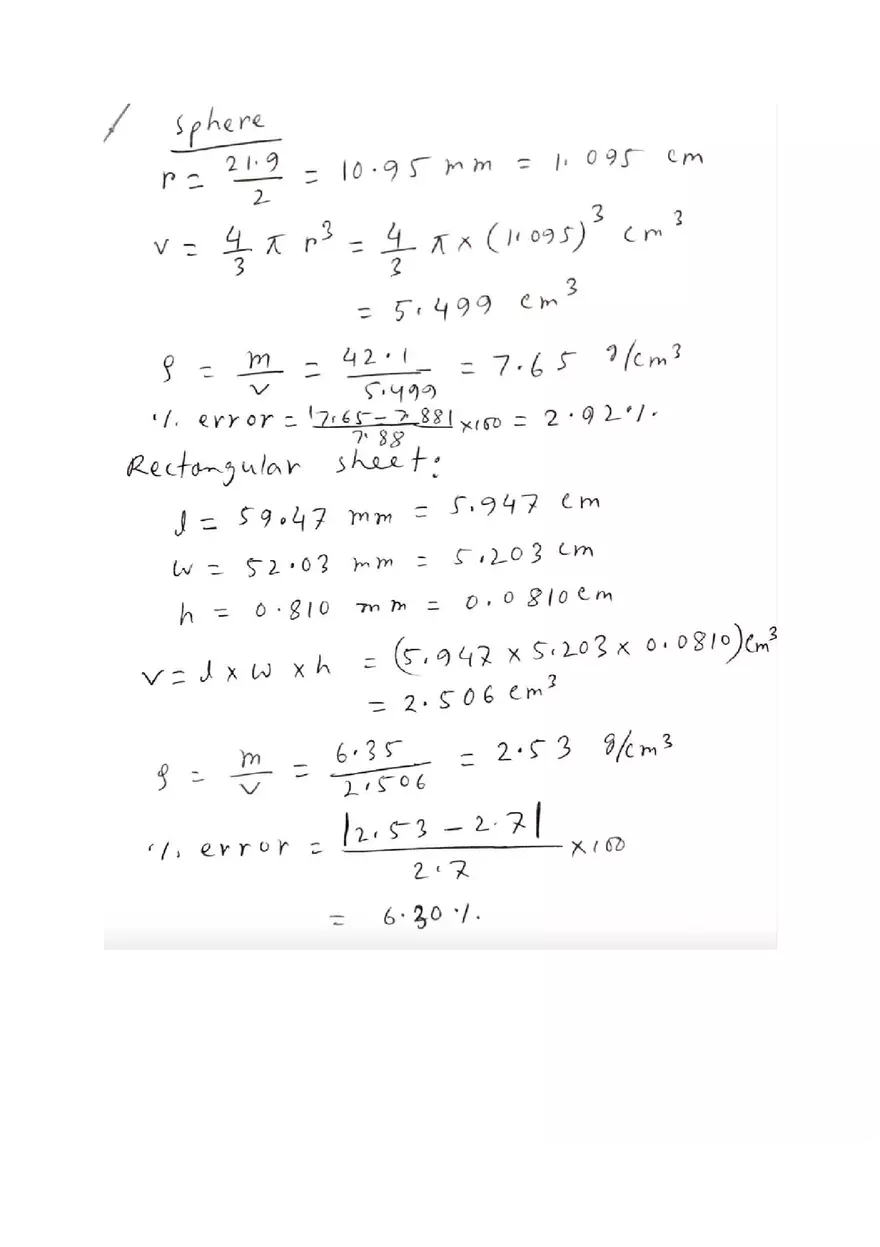 Sphere
r = 21.9/2 = 10.95 mm = 1.095 cm
v = 4/3 π r³ = 4/3 π × (1.095)³ cm³
= 5.499 cm³
ρ = m/v = 42.1/5.499 = 7.65 g/cm³
% error = |7.65 - 7.88|/7.88 ×100 = 2.92%.
Rectangular sheet:
l = 59.47 mm = 5.947 cm
w = 52.03 mm = 5.203 cm
h = 0.810 mm = 0.0810 cm
v = l × w × h = (5.947 × 5.203 × 0.0810) cm³
= 2.506 cm³
ρ = m/v = 6.35/2.506 = 2.53 g/cm³
% error = |2.53 - 2.7|/2.7 ×100
= 6.30 %.